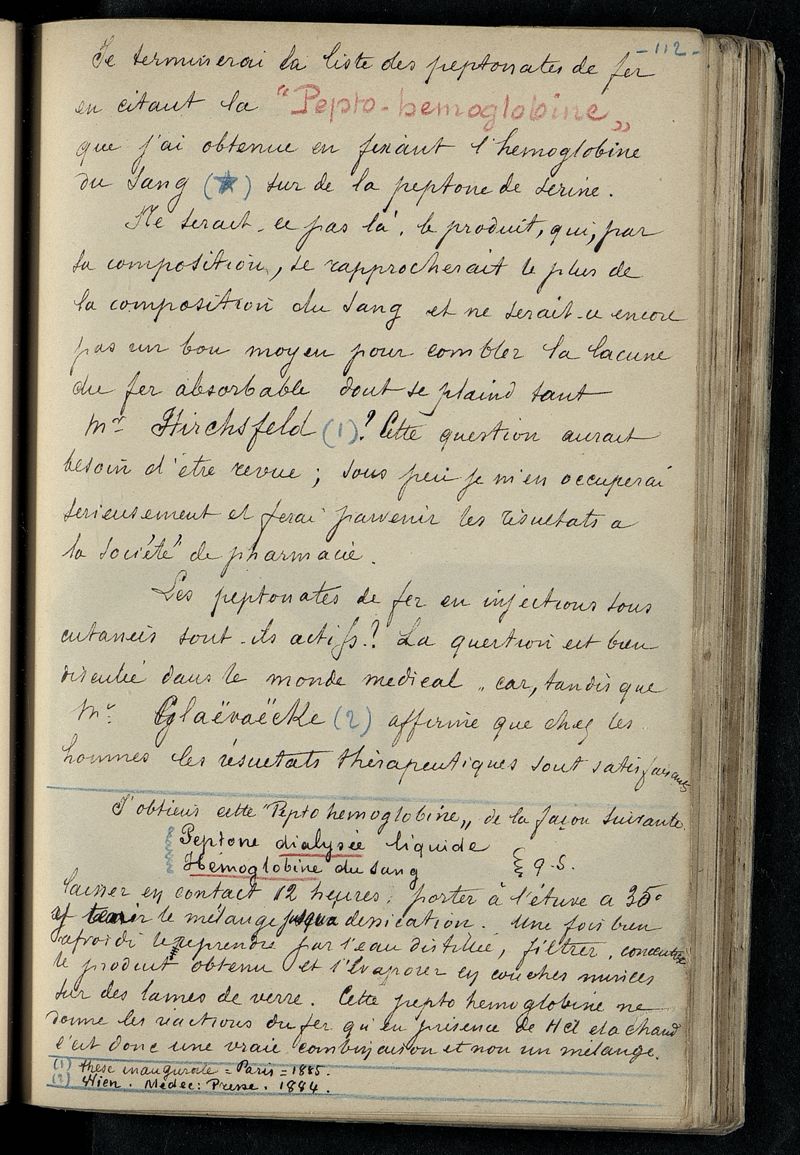 - 112 -
Je terminerai la liste des peptonates de fer
en citant la "Pepto-hemoglobine„
que j'ai obtenue en fixant l'hemoglobine
du sang (★) sur de la peptone de serine.
Ne serait-ce pas là, le produit, qui, par
sa composition, se rapprocherait le plus de
la composition du sang et ne serait-ce encore
pas un bon moyen pour combler la lacune
du fer absorbable dont se plaind tant
Mr Hirchsfeld (1)? Cette question aurait
besoin d'être revue ; sous peu je m'en occuperai
serieusement et ferai parvenir les résultats a
la Société de pharmacie.
Les peptonates de fer en injections sous
cutaneés sont-ils actifs? La question est bien
discutée dans le monde medical, car, tandis que
Mr. Glaëvaëcke (2) affirme que chez les
hommes les résultats thérapeutiques sont satisfaisants
J'obtiens cette "Pepto hemoglobine„ de la façon suivante
Peptone dialysée liquide
Hémoglobine du sang } q.s.
laisser en contact 12 heures, porter à l'étuve a 35°
et tenir le mélange jusqua dessication. Une fois bien
refroidi le reprendre par l'eau distillée, filtrer, concentrer
le produit obtenu et l'évaporer en couches minces
sur des lames de verre. Cette pepto hemoglobine ne
donne les réactions du fer qu'en présence de HCl et a chaud
c'est donc une vraie combinaison et non un mélange.
(1) thèse inaugurale = Paris = 1885.
(2) Wien. Médec: Presse. 1884.